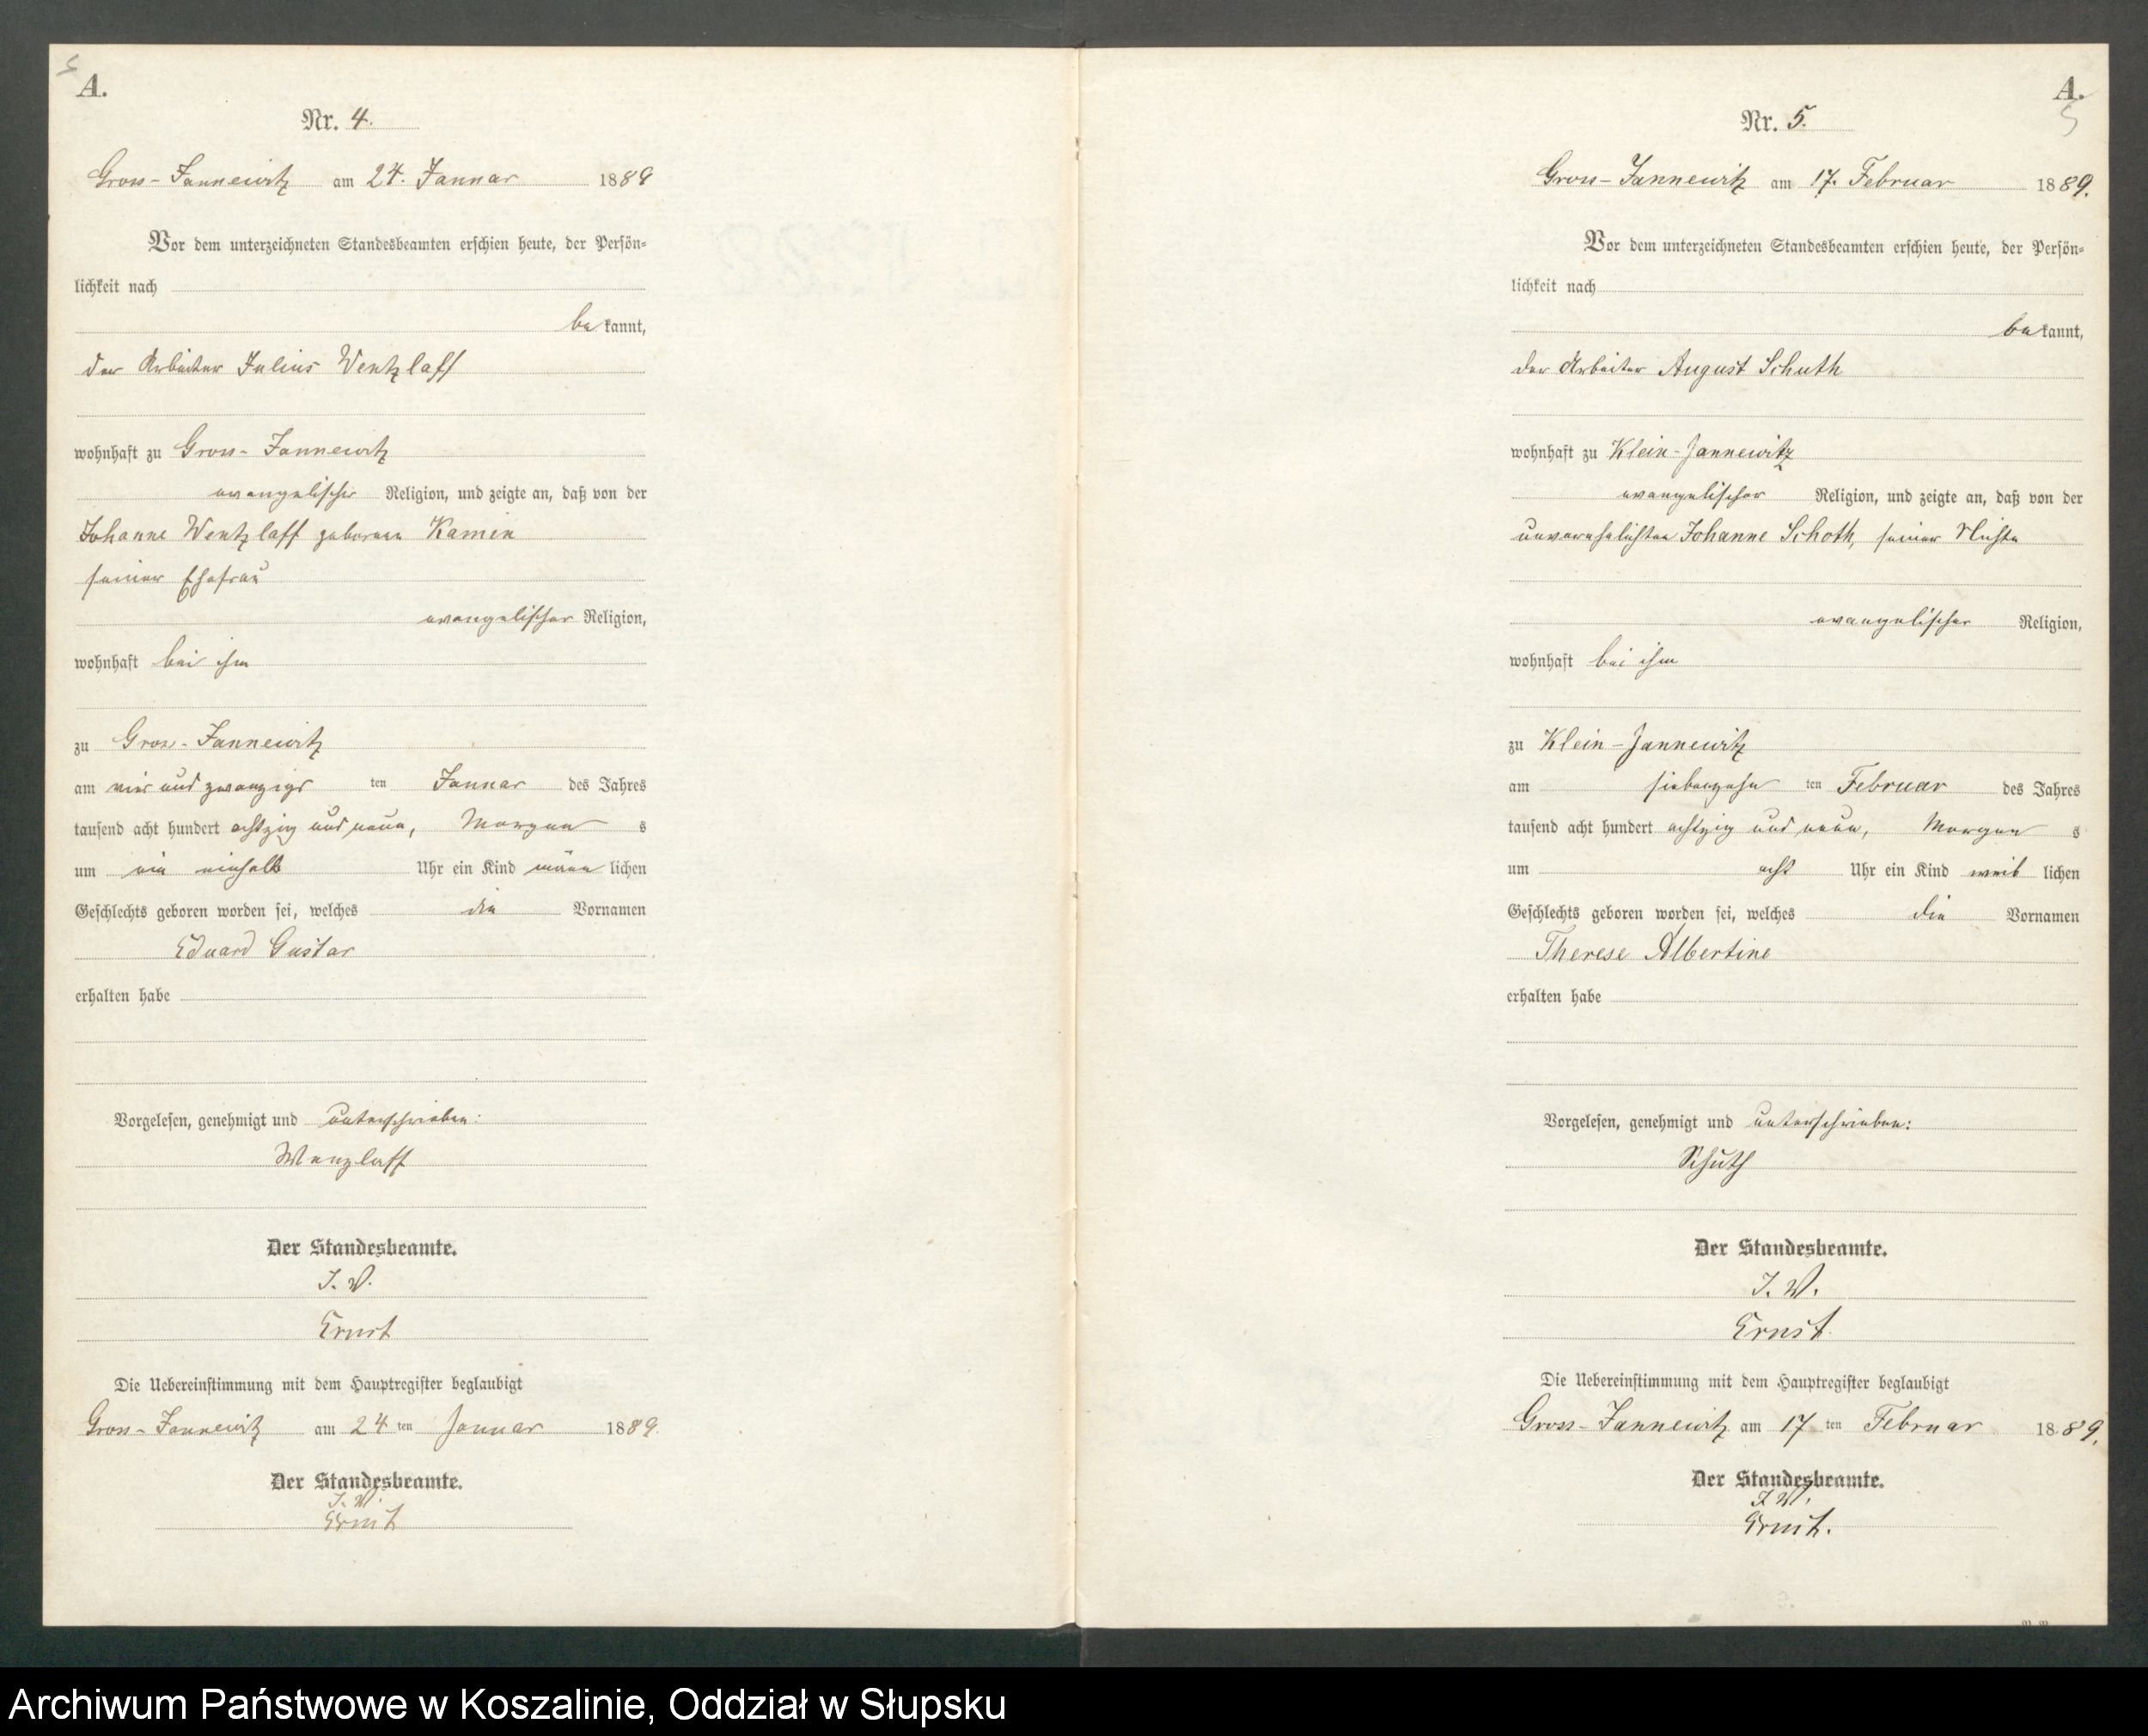 A.
Nr. 4.
Gross-Jannewitz am 24. Januar 1889
Vor dem unterzeichneten Standesbeamten erschien heute, der Persön-
lichkeit nach
be kannt,
der Arbeiter Julius Wentzlaff
wohnhaft zu Gross-Jannewitz
evangelischer Religion, und zeigte an, daß von der
Johanne Wentzlaff geborenen Kamin
seiner Ehefrau
evangelischer Religion,
wohnhaft bei ihm
zu Gross-Jannewitz
am vier und zwanzigs ten Januar des Jahres
tausend acht hundert achtzig und neun, Morgen s
um ein einhalb Uhr ein Kind männ lichen
Geschlechts geboren worden sei, welches die Vornamen
Eduard Gustav
erhalten habe
Vorgelesen, genehmigt und unterschrieben:
Wenzlaff
Der Standesbeamte.
J. V.
Ernst
Die Uebereinstimmung mit dem Hauptregister beglaubigt
Gross-Jannewitz am 24 ten Januar 1889.
Der Standesbeamte.
J. V.
Ernst
A.
5
Nr. 5.
Gross-Jannewitz am 17. Februar 1889.
Vor dem unterzeichneten Standesbeamten erschien heute, der Persön-
lichkeit nach
be kannt,
der Arbeiter August Schuth
wohnhaft zu Klein-Jannewitz
evangelischer Religion, und zeigte an, daß von der
unverehelichten Johanne Schoth, seiner Nichte
evangelischer Religion,
wohnhaft bei ihm
zu Klein-Jannewitz
am siebenzehn ten Februar des Jahres
tausend acht hundert achtzig und neun, Morgen s
um acht Uhr ein Kind weib lichen
Geschlechts geboren worden sei, welches die Vornamen
Therese Albertine
erhalten habe
Vorgelesen, genehmigt und unterschrieben:
Schuth
Der Standesbeamte.
J. V.
Ernst
Die Uebereinstimmung mit dem Hauptregister beglaubigt
Gross-Jannewitz am 17 ten Februar 1889.
Der Standesbeamte.
J. V.
Ernst.
Archiwum Państwowe w Koszalinie, Oddział w Słupsku